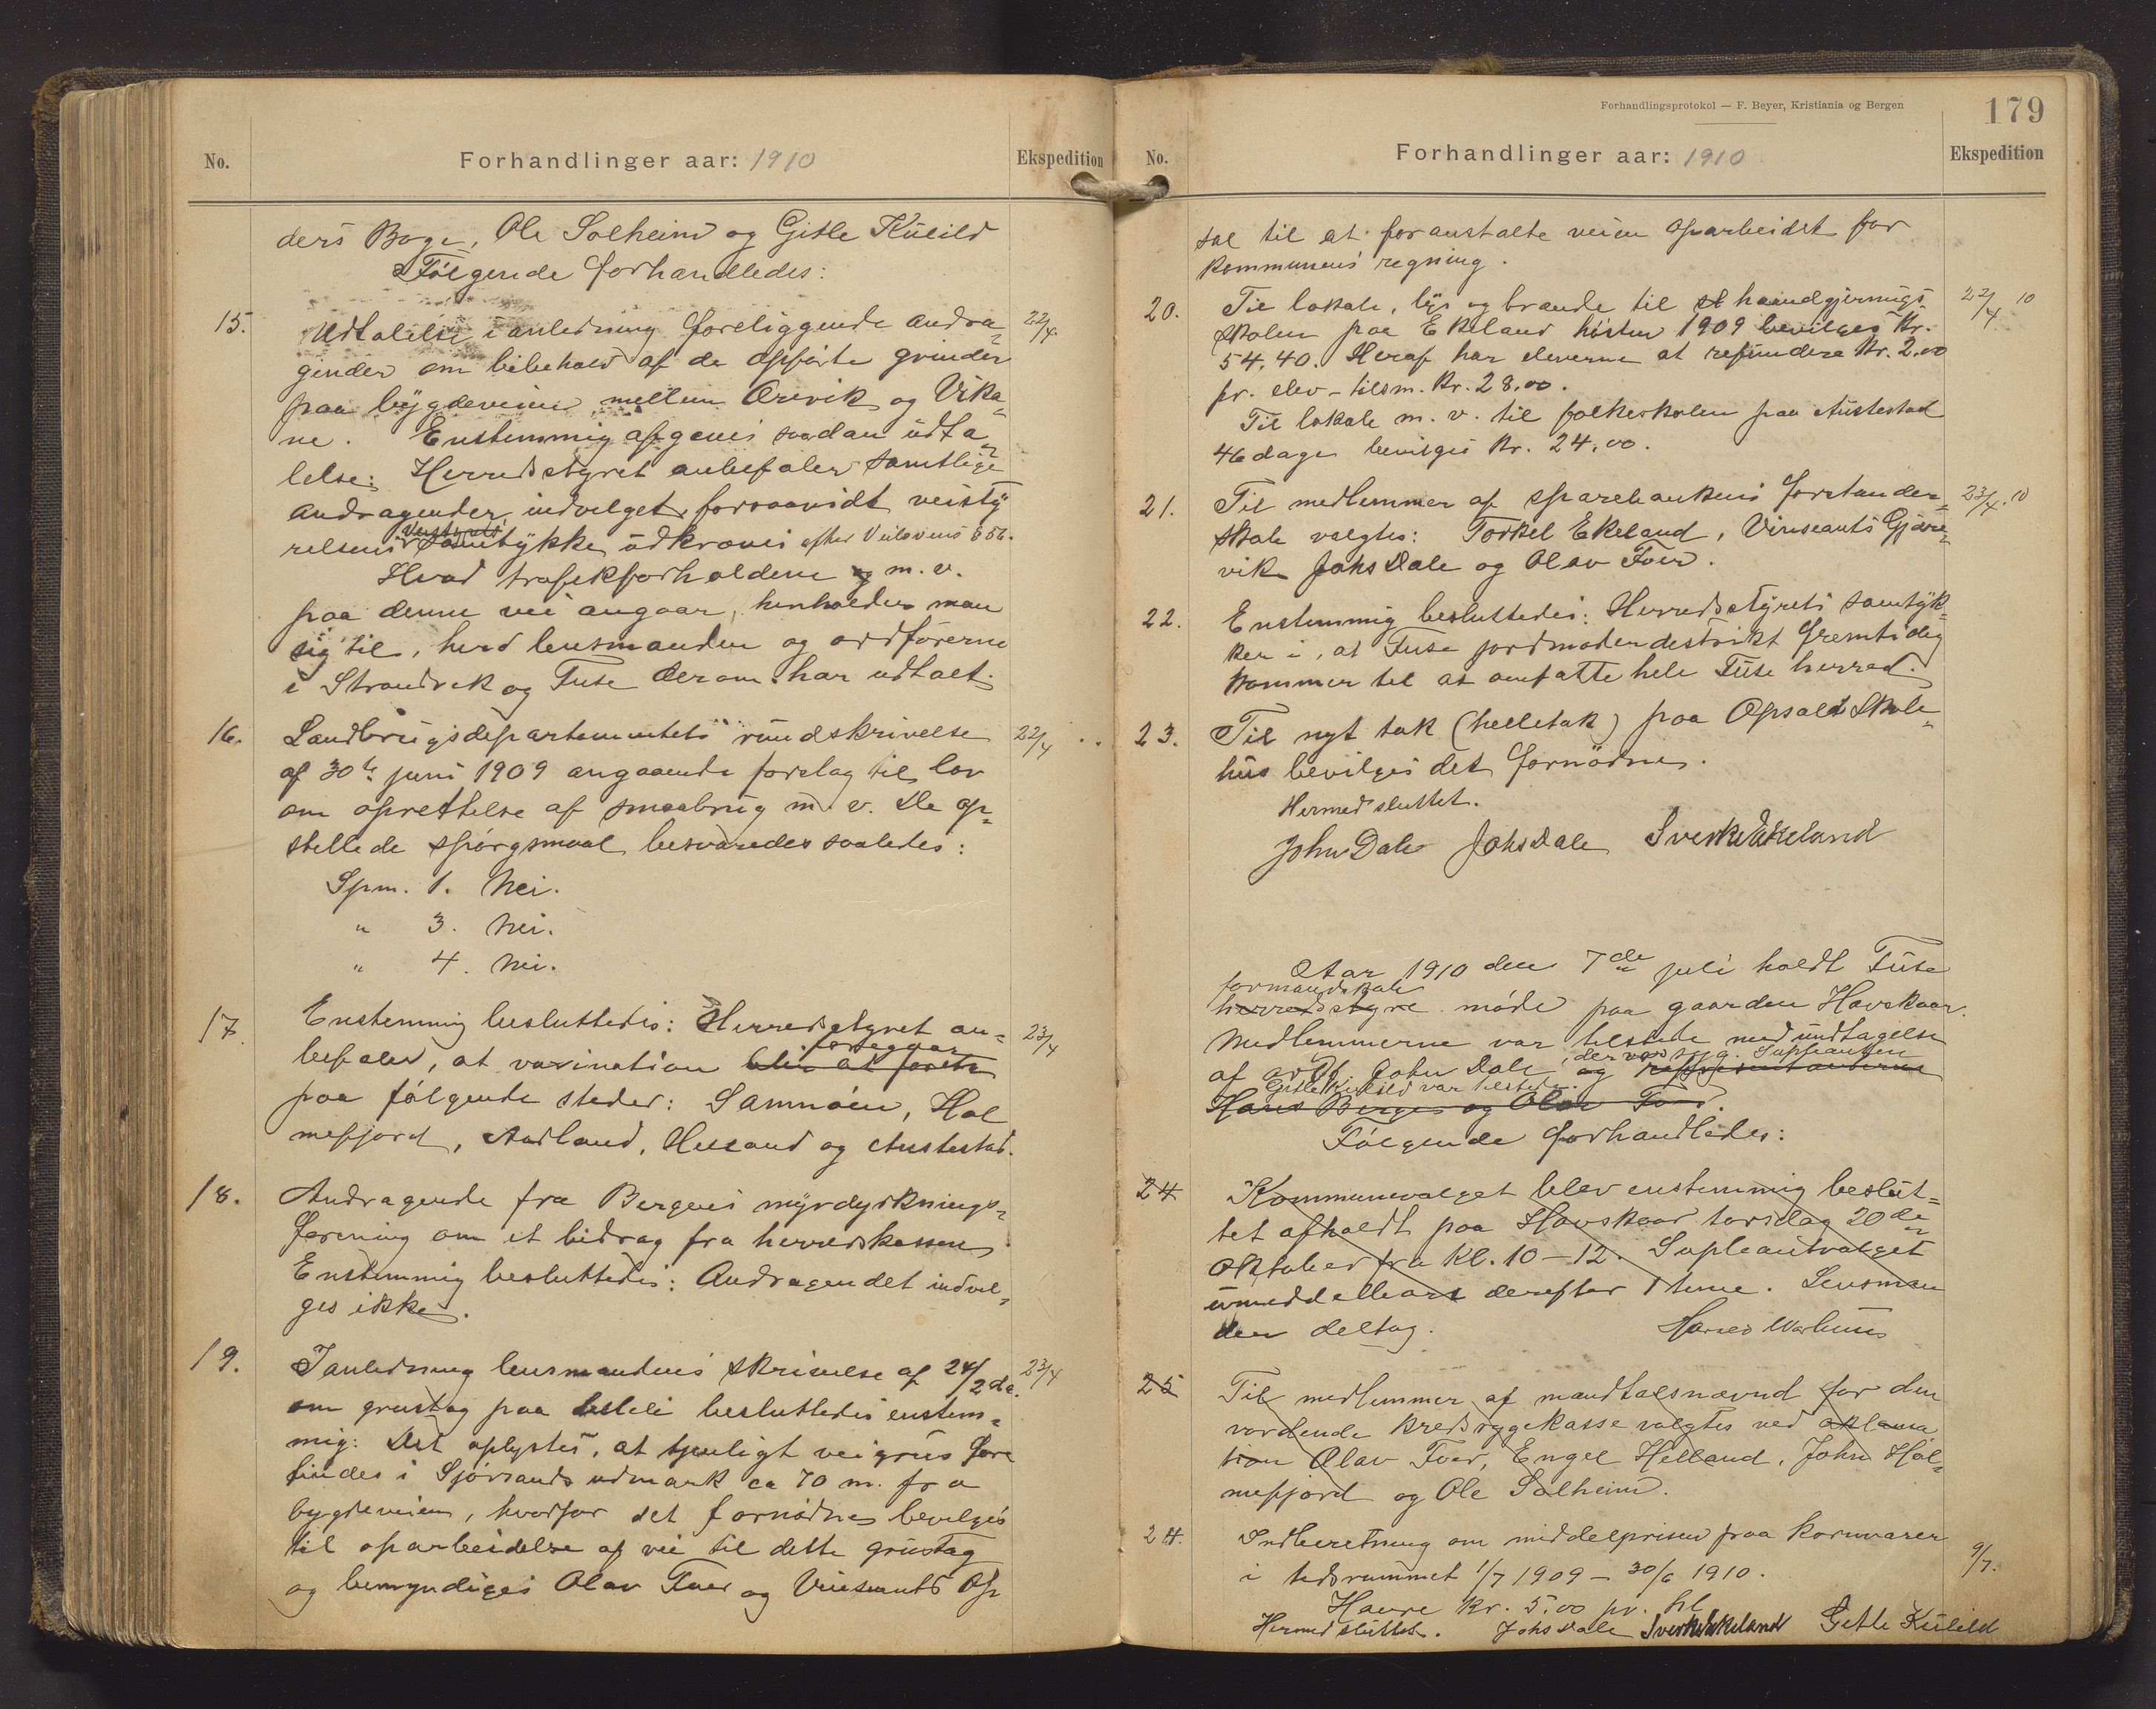 No.
Forhandlinger aar: 1910
Ekspedition
ders Boge, Ole Solheim og Gitle Kueild
Følgende forhandledes:
15.
Udtalelse i anledning foreliggende andra-
22/4
gender om bibehold af de opførte grinder
paa bygdeveien mellem Ørevik og Vika-
ne. Enstemmig afgaves saadan udta-
lelse: Herredsstyret anbefaler samtlige
andragender indvilget, forsaavidt veisty-
relsens samtykke udkræves efter Veilovens § 56.
Hvad trafikforholdene m. v.
paa denne vei angaar, henholder man
sig til, hvad lensmanden og ordførerne
i Strandvik og Fuse derom har udtalt.
16.
Landbrugsdepartementets rundskrivelse
22/4
af 30te juni 1909 angaaende forslag til lov
om oprettelse af smaabrug m. v. De op-
stillede spørgsmaal besvaredes saaledes:
Spm. 1. Nei.
" 3. Nei.
" 4. Nei.
17.
Enstemmig besluttedes: Herredsstyret an-
23/4
foregaar
befaler, at vaxination blir at foreta
paa følgende steder: Samnøen, Hol
mefjord, Aadland, Helland og Austestad.
18.
Andragende fra Bergens myrdyrknings-
forening om et bidrag fra herredskassen.
Enstemmig besluttedes: Andragendet indvil-
ges ikke.
19.
I anledning lensmandens skrivelse af 24/2 ds.
23/4
om grustag paa besluttedes enstem-
mig: Det oplystes, at tjenligt veigrus fore
findes i Sjørsands udmark ca 70 m. fra
bygdeveien, hvorfor det fornødne bevilges
til oparbeidelse af vei til dette grustag
og bemyndiges Olav Tver og Vinseants Op
Forhandlingsprotokol — F. Beyer, Kristiania og Bergen
179
No.
Forhandlinger aar: 1910
Ekspedition
sal til at foranstalte veien oparbeidet for
kommunens regning.
20.
Til lokale, lys og brænde til haandgjernings
22/4 10
skolen paa Ekeland høsten 1909 bevilges Kr.
54.40. Heraf har eleverne at refundere Kr. 2.00
pr. elev - tilsm. Kr. 28.00.
Til lokale m. v. til folkeskolen paa Austestad
46 dage bevilges Kr. 24.00.
21.
Til medlemmer af sparebankens forstander-
23/4. 10
skab valgtes: Torkel Ekeland, Vinseants Gjære-
vik Johs Dale og Olav Tver.
22.
Enstemmig besluttedes: Herredsstyret samtyk-
ker i, at Fuse jordmoderdistrikt fremtidig
kommer til at omfatte hele Fuse herred.
23.
Til nyt tak (helletak) paa Opsals Skole-
hus bevilges det fornødne.
Hermed sluttet.
John Dale Johs Dale Sverke Ekeland
Aar 1910 den 7de juli holdt Fuse
formandskab
herredsstyre møde paa gaarden Havskaar.
Medlemmerne var tilstede med undtagelse
, der var syg. Supleanten
af ordf. John Dale og repræsentanterne
Gitle Kueild var tilstede.
Hans Berge og Olav Tver.
Følgende forhandledes:
24
Kommunevalget blev enstemmig beslut-
tet afholdt paa Havskaar torsdag 20de
Oktober fra Kl. 10-12. Supleantvalget
umiddelbart derefter 1 time. Lensman
den deltog.
25
Til medlemmer af mandtalsnævnd for den
vordende kredssygekasse valgtes ved aklama
tion Olav Tver, Engel Helland, John Hol-
mefjord og Ole Solheim.
24.
Indberetning om middelprisen paa kornvarer
i tidsrummet 1/7 1909 - 30/6 1910.
9/7.
Havre Kr. 5.00 pr. hl
Hermed sluttet. Johs Dale Sverke Ekeland Gitle Kueild